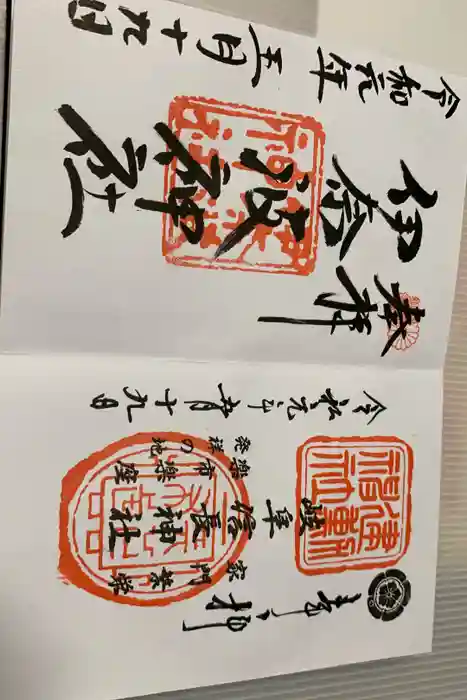 奉拝
家門繁栄
岐阜信長神社
楽市楽座
発祥の地
令和元年五月十九日
奉拝
伊奈波神社
令和元年五月十九日